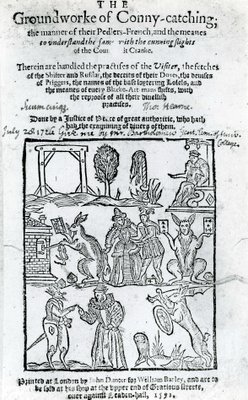 THE
Groundworke of Conny-catching;
the manner of their Pedlers-French, and the meanes
to vnderstand the same, with the cunning slights
of the Counterfeit Cranke.
Therein are handled the practises of the Visiter, the fetches
of the Shifter and Rufflar, the deceits of their Doxes, the deuises
of Priggers, the names of the base loytering Losels, and
the meanes of euery Blacke-Art-mans shifts, with
the reproofe of all their diuellish
practises.
Tho: Hearne.
Done by a Justice of Peace of great authoritie, who hath
had the examining of diuers of them.
July 2d 1724 Give me by Mr. Bartholomew
College.
Printed at London by John Danter for William Barley, and are to
be sold at his shop at the vpper end of Gratious streete,
ouer against Leaden-hall, 1592.